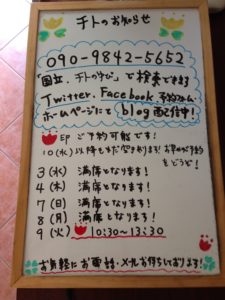 チトのお知らせ
090-9842-5652
「国立、チトのナビ」で検索できます
Twitter、Facebook、予約フォーム・
ホームページにて blog 配信中！
印 ご予約可能です！
10(水)以降もまだ空きあります！お早めの予約
をどうぞ！
3(水) 満席となります！
4(木) 満席となります！
7(日) 満席となります！
8(月) 満席となります！
9(火) 10:30〜13:30
お気軽にお電話・メールお待ちしております！